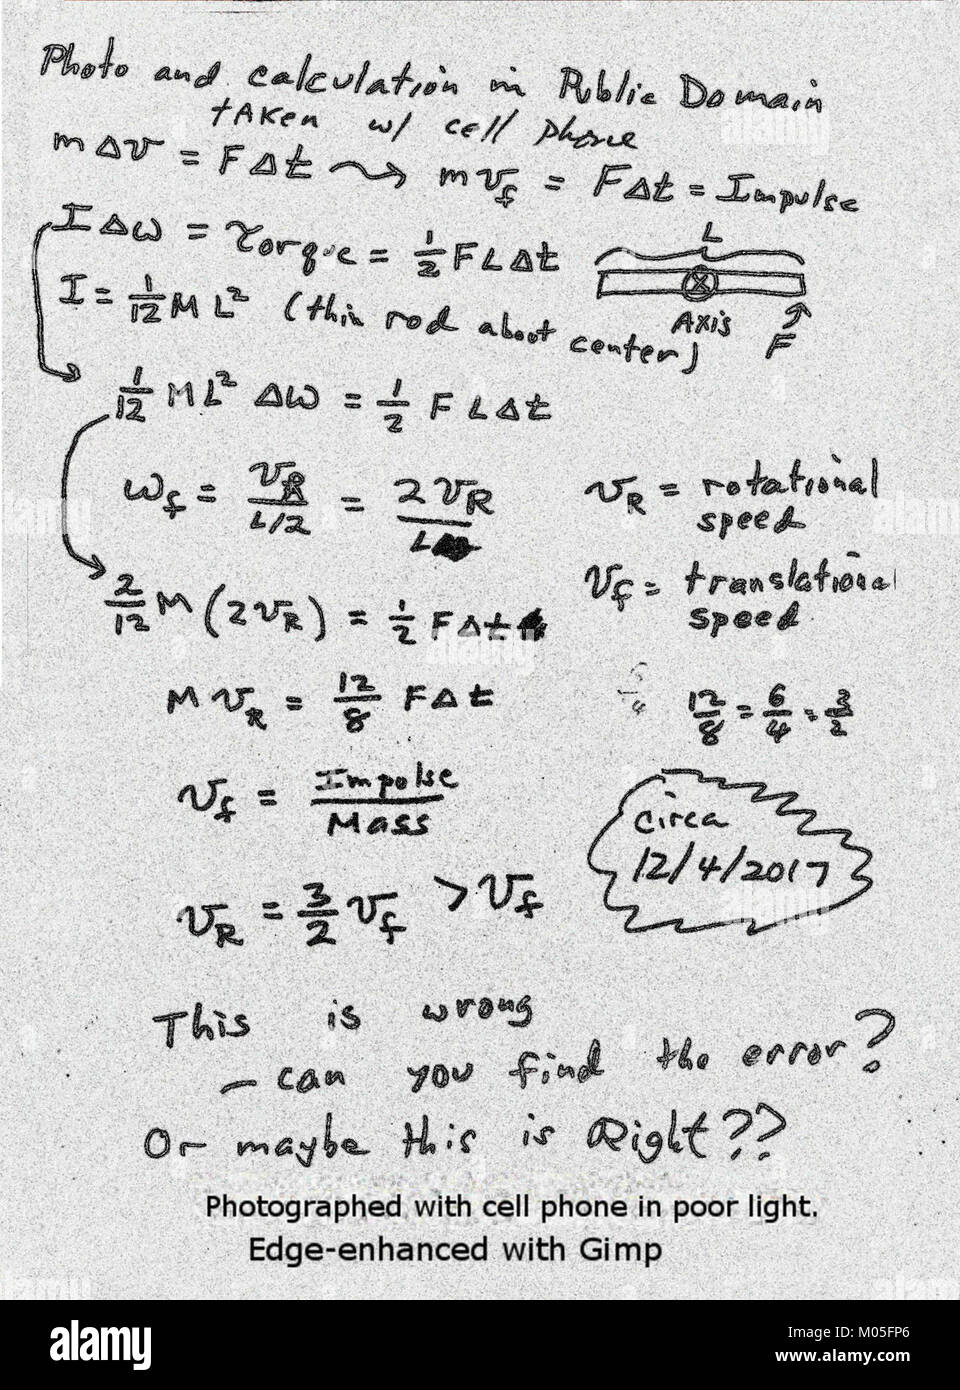 Photo and calculation in Public Domain
taken w/ cell phone
m Δv = F Δt ⤳ m v_f = F Δt = Impulse
I Δω = Torque = 1/2 F L Δt
L
I = 1/12 M L² (thin rod about center)
Axis F
1/12 M L² Δω = 1/2 F L Δt
ω_f = v_R / L/2 = 2 v_R / L
v_R = rotational speed
v_f = translational speed
2/12 M (2 v_R) = 1/2 F Δt
M v_R = 12/8 F Δt
12/8 = 6/4 = 3/2
v_f = Impulse / Mass
circa
12/4/2017
v_R = 3/2 v_f > v_f
This is wrong
- can you find the error?
Or maybe this is Right??
Photographed with cell phone in poor light.
Edge-enhanced with Gimp
alamy
Image ID: M05FP6
www.alamy.com